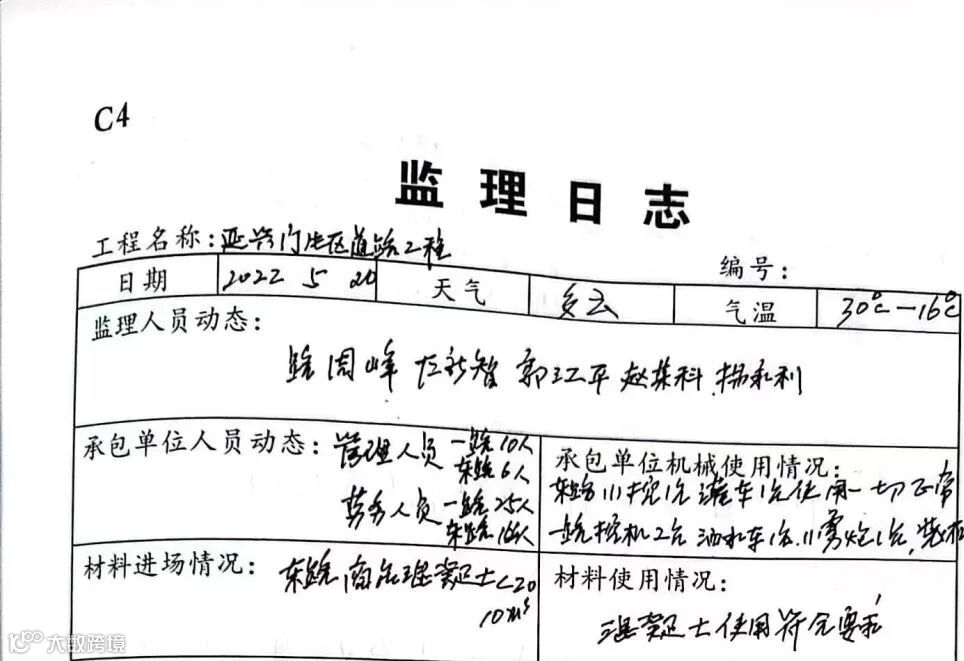 C4
监理日志
工程名称: 延兴门片区道路工程
编号:
日期 2022 5 20 天气 多云 气温 30℃—16℃
监理人员动态:
周峰 智 郭江平 赵集科 利
承包单位人员动态: 管理人员 一路10人
东路6人
劳务人员 一路25人
东路 人
承包单位机械使用情况:
东路小挖1台 灌车1台使用一切正常
一路挖机2台 洒水车1台 小雾炮1台
材料进场情况: 东路商品混凝土C20
10m³
材料使用情况:
混凝土使用符合要求
100 大数跨境